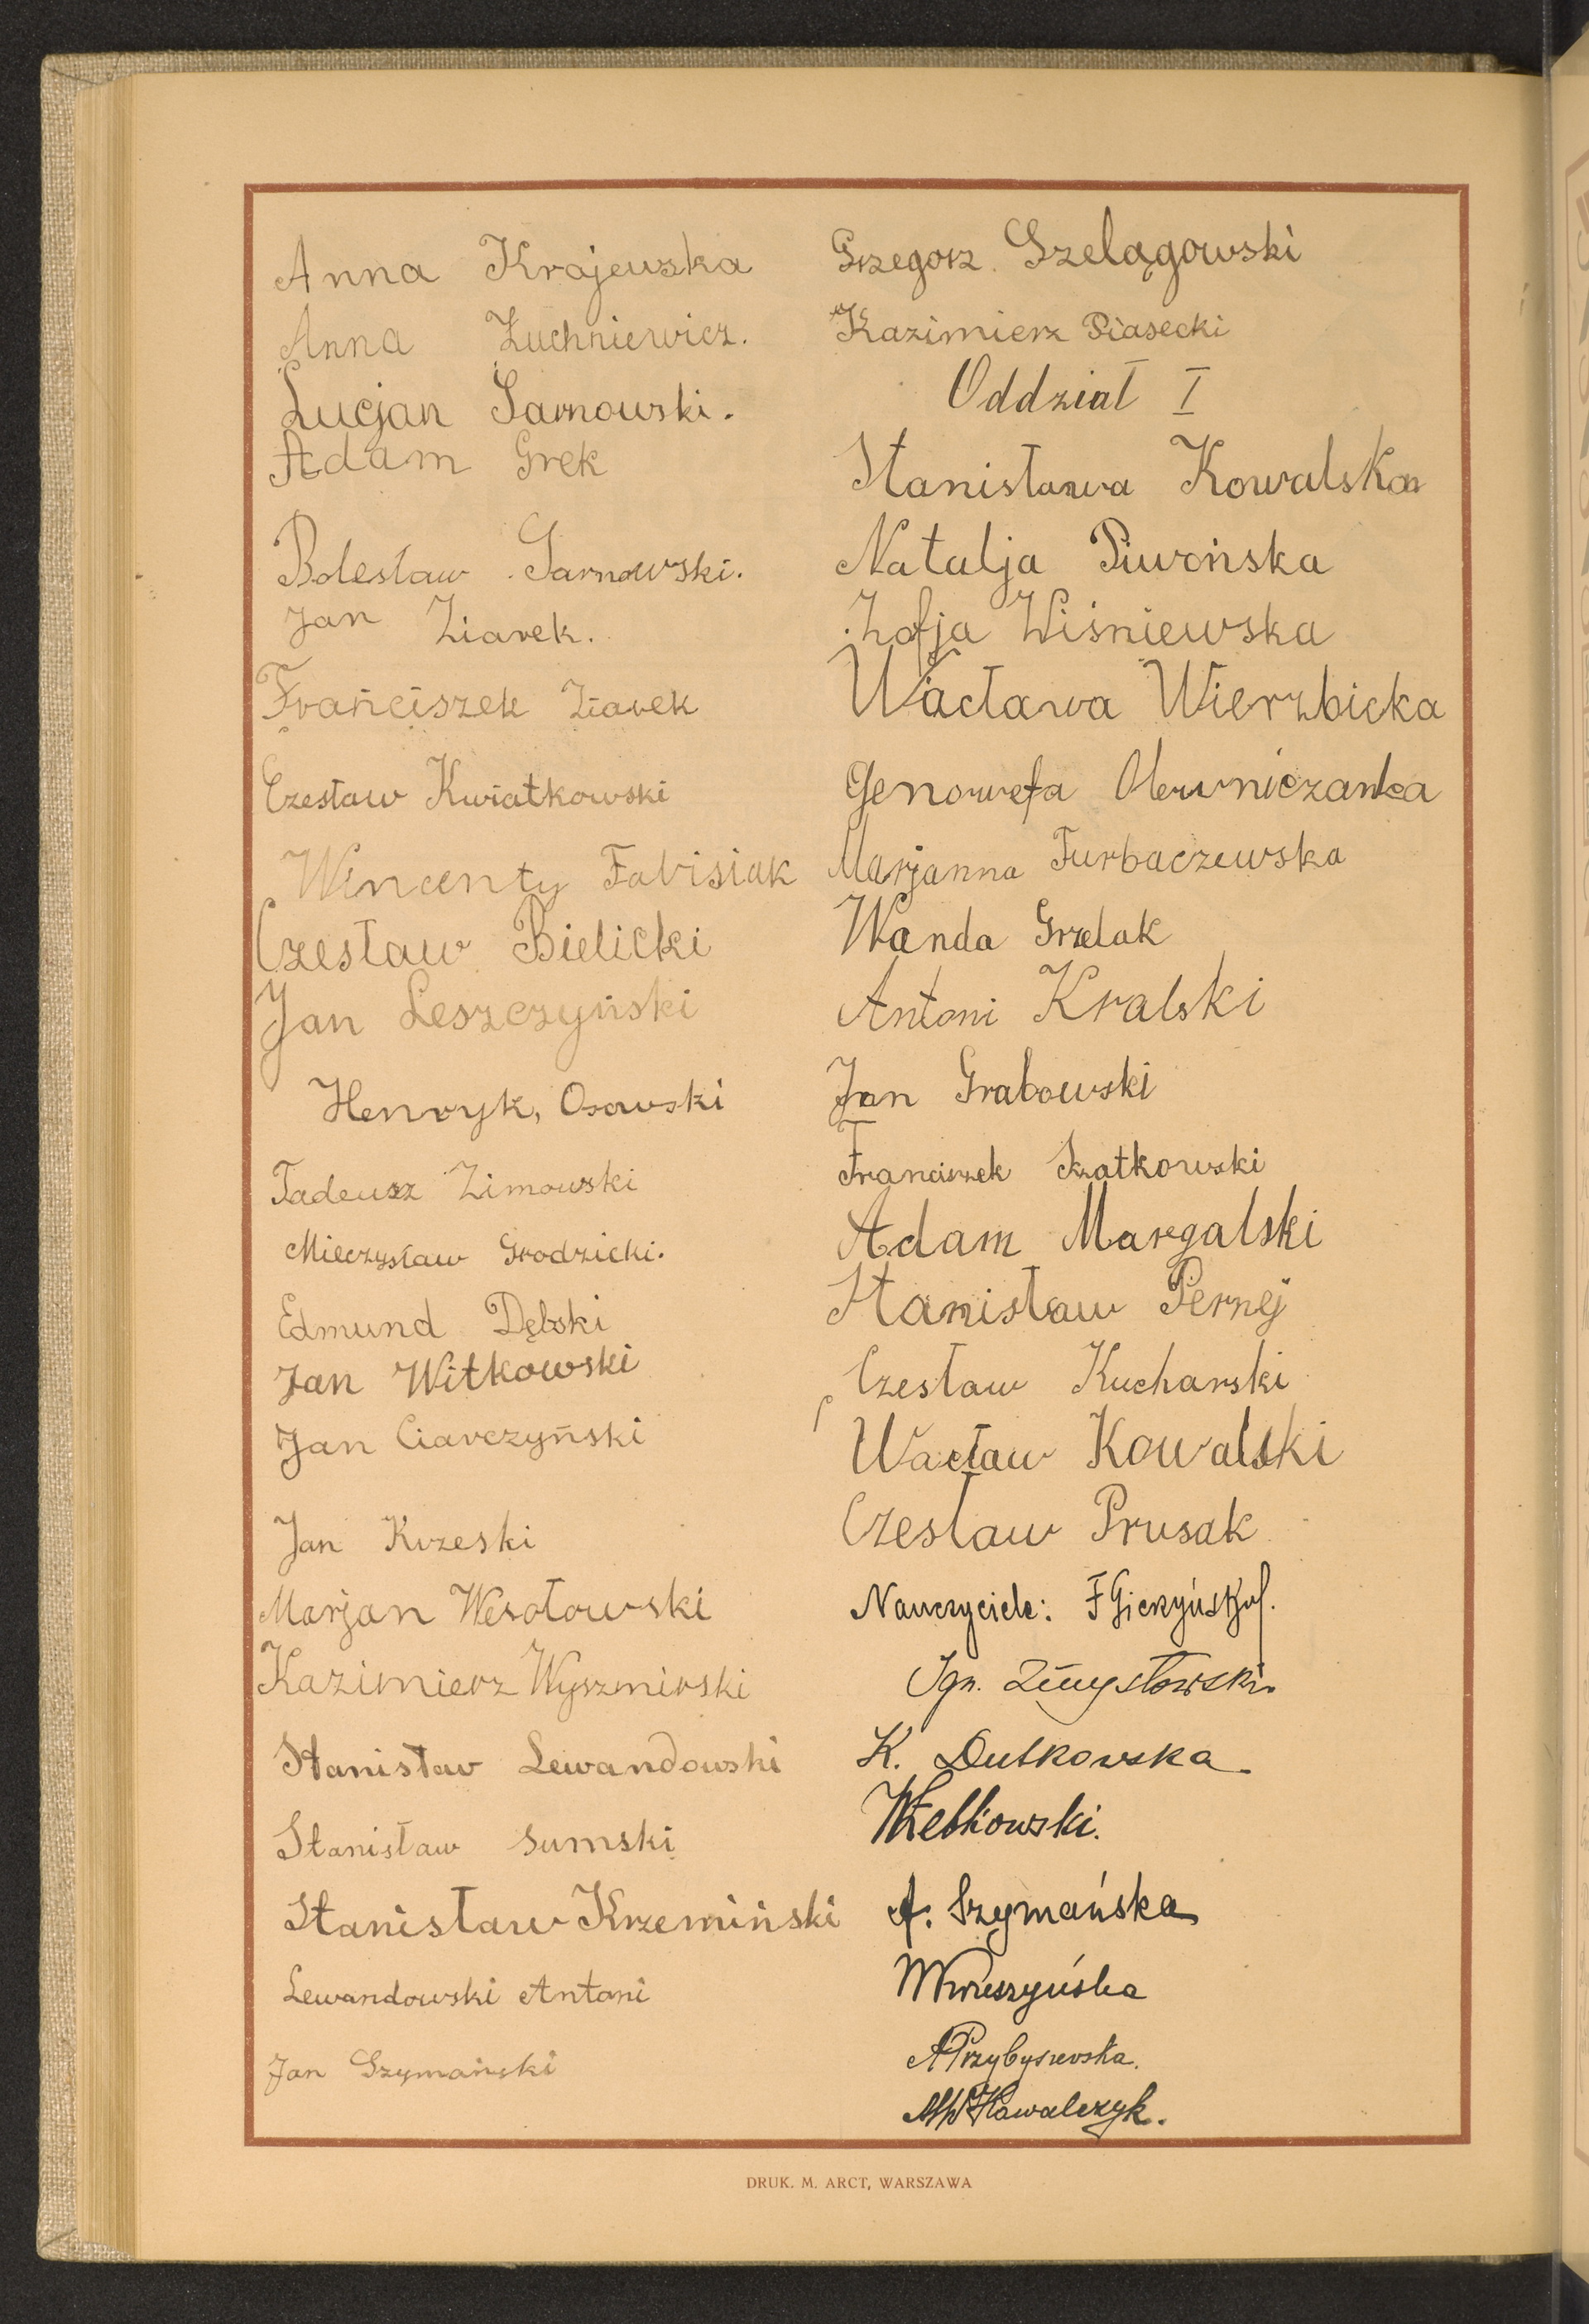 Anna Krajewska
Anna Żuchniewicz.
Lucjan Sarnowski.
Adam Grek
Bolesław Sarnowski.
Jan Ziarek.
Franciszek Ziarek
Czesław Kwiatkowski
Wincenty Fabisiak
Czesław Bielicki
Jan Leszczyński
Henryk, Osowski
Tadeusz Zimowski
Mieczysław Grodzicki.
Edmund Dębski
Jan Witkowski
Jan Ciarczyński
Jan Krzeski
Marjan Wesołowski
Kazimierz Wyszmirski
Stanisław Lewandowski
Stanisław Sumski
Stanisław Krzemiński
Lewandowski Antoni
Jan Szymański
Grzegorz Szelągowski
Kazimierz Piasecki
Oddział I
Stanisława Kowalska
Natalja Piwońska
Zofja Wiśniewska
Wacława Wierzbicka
Genowefa
Marjanna Turbaczewska
Wanda Grzelak
Antoni Kralski
Jan Grabowski
Franciszek Szatkowski
Adam Margalski
Stanisław Pernej
Czesław Kucharski
Wacław Kowalski
Czesław Prusak
Nauczyciele:
Ign. Zmysłowski.
K. Dutkowska
A. Szymańska
APrzybyszewska.
Kowalczyk.
DRUK. M. ARCT, WARSZAWA